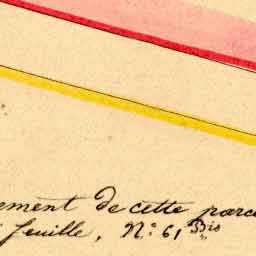 ement de cette parce
feuille, N°: 61 Bis